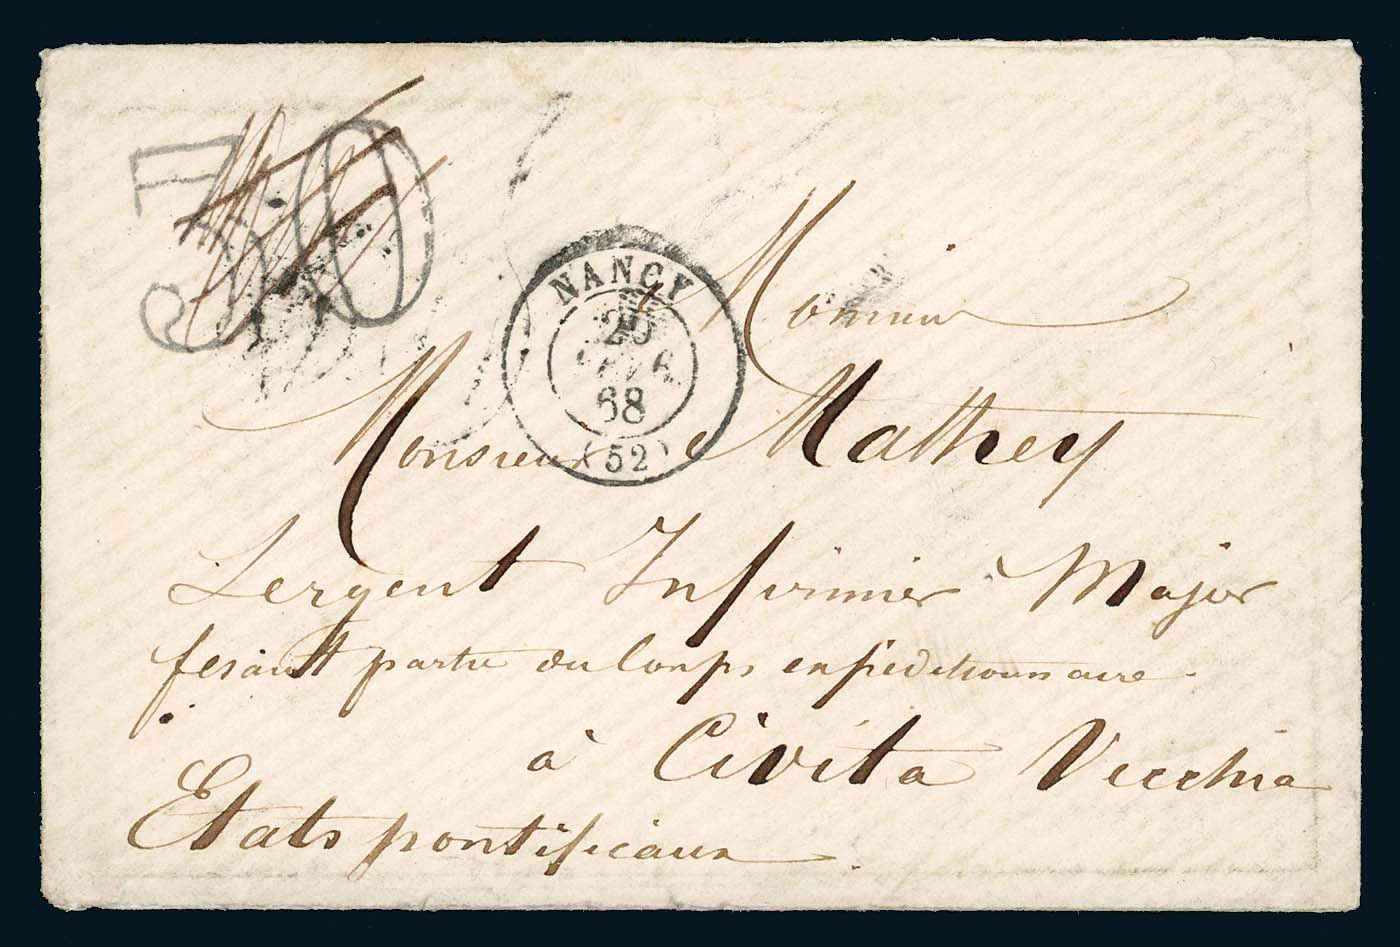 30
NANCY
20
68
(52)
Monsieur
Monsieur Mathey
Sergent Infirmier Major
fesant partie du Corps expéditionnaire
à Civita Vecchia
Etats pontificaux